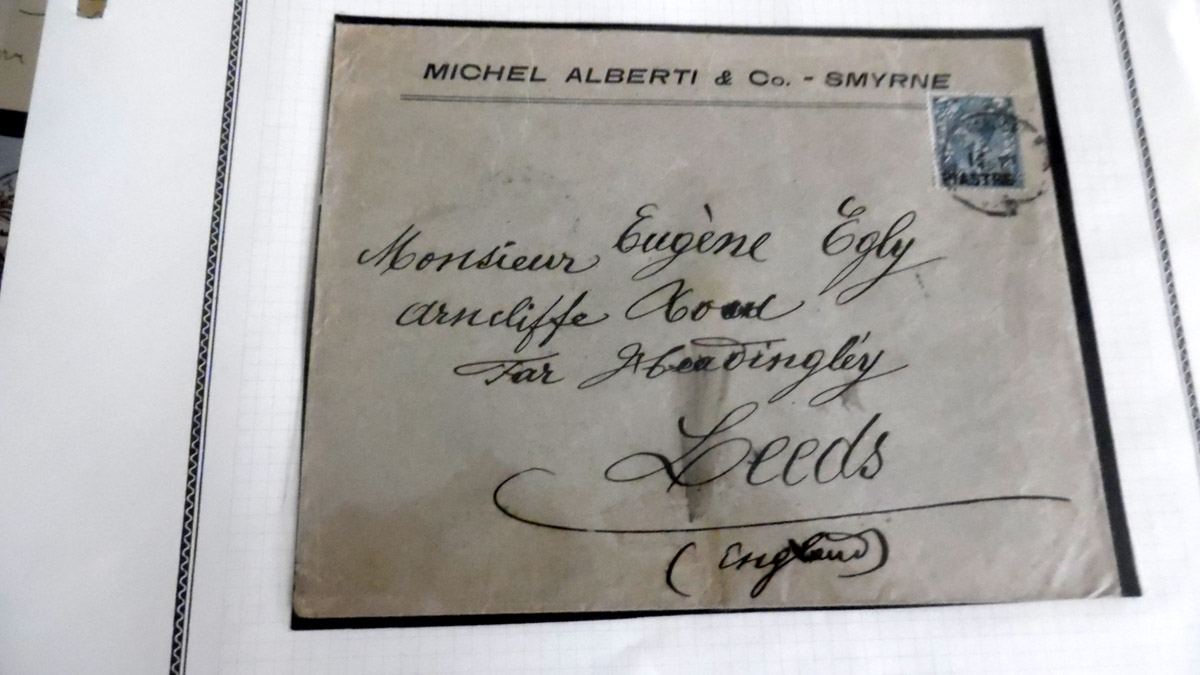 MICHEL ALBERTI & Co. - SMYRNE
PIASTRE
Monsieur Eugène Egly
Arncliffe
Far Headingléy
Leeds
(England)